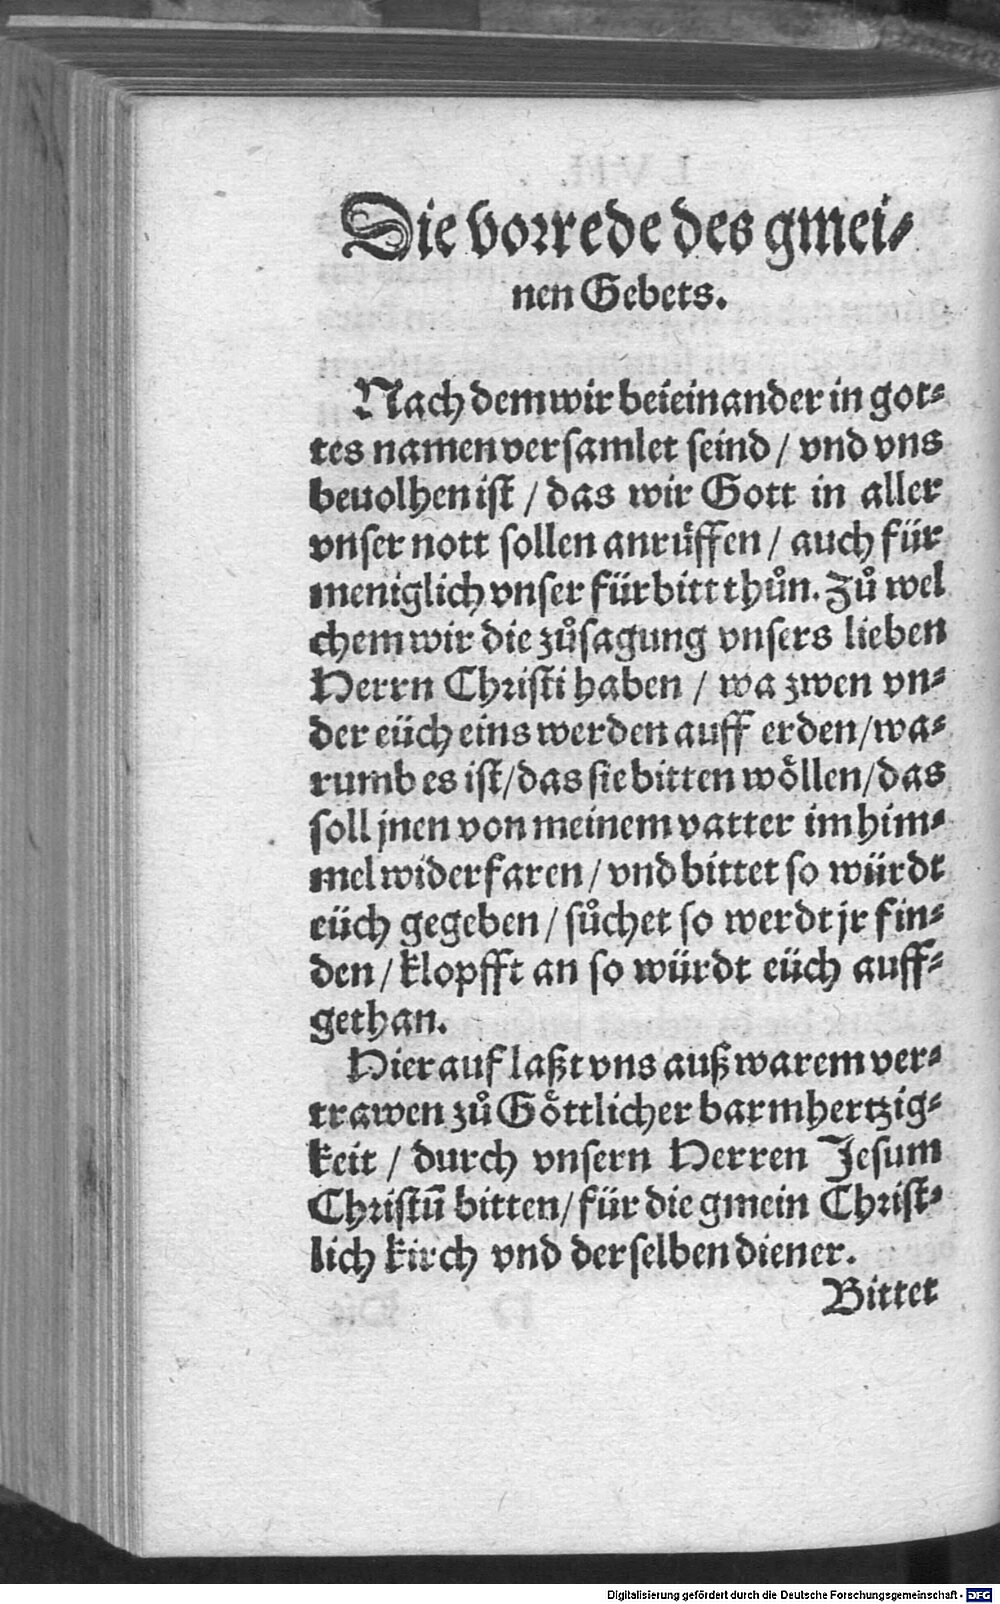 Die vorrede des gmei⸗
nen Gebets.
Nach dem wir beieinander in got⸗
tes namen versamlet seind / vnd vns
beuolhen ist / das wir Gott in aller
vnser nott sollen anrüffen / auch für
meniglich vnser fürbitt thůn. Zů wel
chem wir die zůsagung vnsers lieben
Herrn Christi haben / wa zwen vn⸗
der eüch eins werden auff erden / wa⸗
rumb es ist / das sie bitten wöllen / das
soll jnen von meinem vatter im him⸗
mel widerfaren / vnd bittet so würdt
eüch gegeben / sůchet so werdt jr fin⸗
den / klopfft an so würdt eüch auff⸗
gethan.
Hierauf laßt vns auß warem ver⸗
trawen zů Göttlicher barmhertzig⸗
keit / durch vnsern Herren Jesum
Christū bitten / für die gmein Christ⸗
lich kirch vnd derselben diener.
Bittet
Digitalisierung gefördert durch die Deutsche Forschungsgemeinschaft - DFG